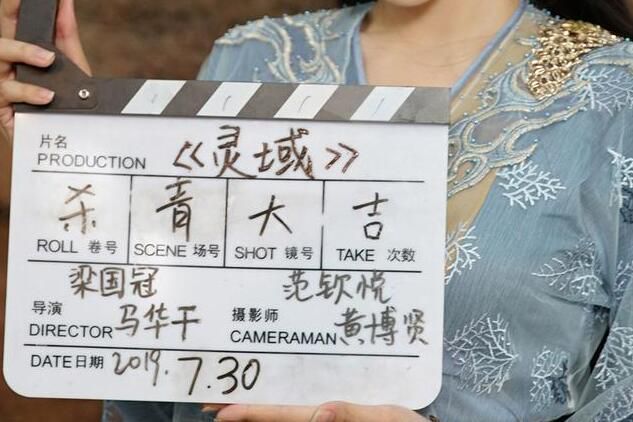 片名
PRODUCTION 《灵域》
杀 青 大 吉
ROLL 卷号 SCENE 场号 SHOT 镜号 TAKE 次数
梁国冠 范钦悦
导演 马华干 摄影师 黄博贤
DIRECTOR CAMERAMAN
DATE 日期 2019.7.30